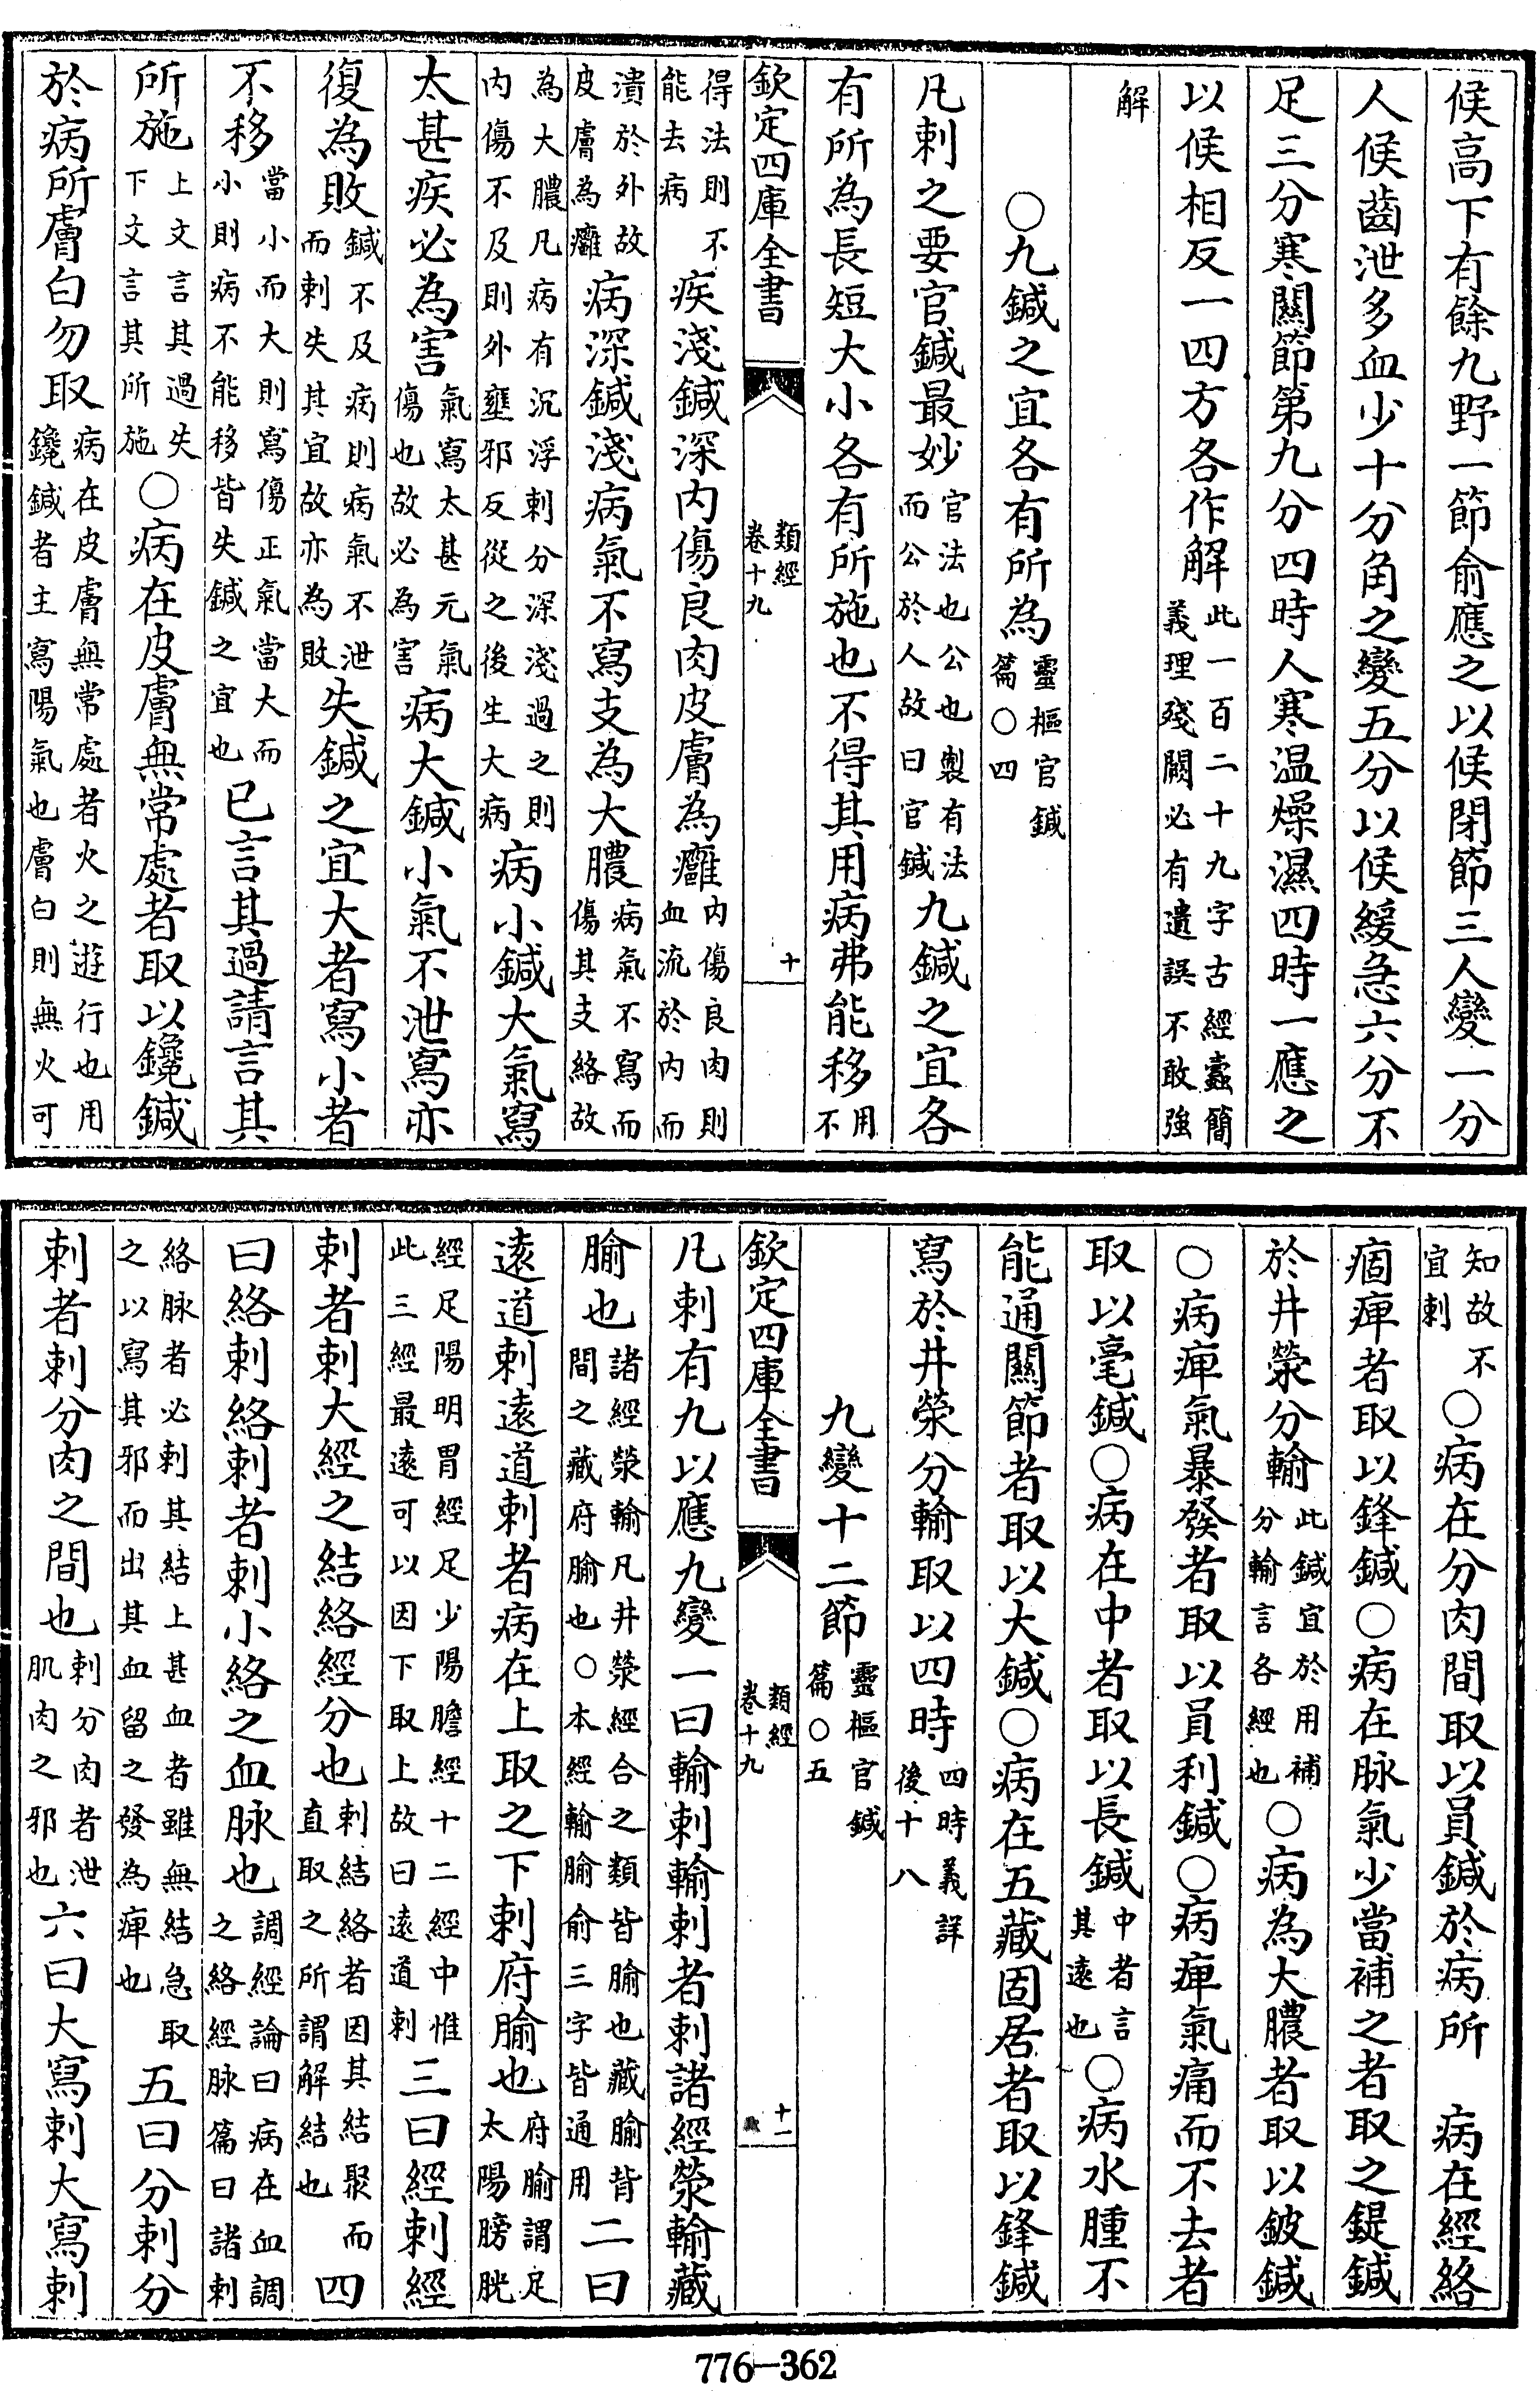 候高下有餘九野一節俞應之以候閉節三人變一分
人候齒泄多血少十分角之變五分以候緩急六分不
足三分寒關節第九分四時人寒溫燥濕四時一應之
以候相反一四方各作解此一百二十九字古經蠹簡義理殘闕必有遺誤不敢強
解
○九鍼之宜各有所為靈樞官鍼篇○四
凡刺之要官鍼最妙官法也公也製有法而公於人故曰官鍼九鍼之宜各
有所為長短大小各有所施也不得其用病弗能移用不
欽定四庫全書 類經卷十九 十
得法則不能去病疾淺鍼深內傷良肉皮膚為癰內傷良肉則血流於內而
潰於外故皮膚為癰病深鍼淺病氣不寫支為大膿病氣不寫而傷其支絡故
為大膿凡病有沉浮刺分深淺過之則內傷不及則外壅邪反從之後生大病病小鍼大氣寫
太甚疾必為害氣寫太甚元氣傷也故必為害病大鍼小氣不泄寫亦
復為敗鍼不及病則病氣不泄而刺失其宜故亦為敗失鍼之宜大者寫小者
不移當小而大則寫傷正氣當大而小則病不能移皆失鍼之宜也已言其過請言其
所施上文言其過失下文言其所施○病在皮膚無常處者取以鑱鍼
於病所膚白勿取病在皮膚無常處者火之遊行也用鑱鍼者主寫陽氣也膚白則無火可
知故不宜刺○病在分肉間取以員鍼於病所 病在經絡
痼痺者取以鋒鍼○病在脉氣少當補之者取之鍉鍼
於井滎分輸此鍼宜於用補分輸言各經也○病為大膿者取以鈹鍼
○病痺氣暴發者取以員利鍼○病痺氣痛而不去者
取以毫鍼○病在中者取以長鍼中者言其遠也○病水腫不
能通關節者取以大鍼○病在五藏固居者取以鋒鍼
寫於井滎分輸取以四時四時義詳後十八
九變十二節靈樞官鍼篇○五
欽定四庫全書 類經卷十九 十一
凡刺有九以應九變一曰輸刺輸刺者刺諸經滎輸藏
腧也諸經滎輸凡井滎經合之類皆腧也藏腧背間之藏府腧也○本經輸腧俞三字皆通用二曰
遠道刺遠道刺者病在上取之下刺府腧也府腧謂足太陽膀胱
經足陽明胃經足少陽膽經十二經中惟此三經最遠可以因下取上故曰遠道刺三曰經刺經
刺者刺大經之結絡經分也刺結絡者因其結聚而直取之所謂解結也四
曰絡刺絡刺者刺小絡之血脉也調經論曰病在血調之絡經脉篇曰諸刺
絡脉者必刺其結上甚血者雖無結急取之以寫其邪而出其血留之發為痺也五曰分刺分
刺者刺分肉之間也刺分肉者泄肌肉之邪也六曰大寫刺大寫刺
776—362